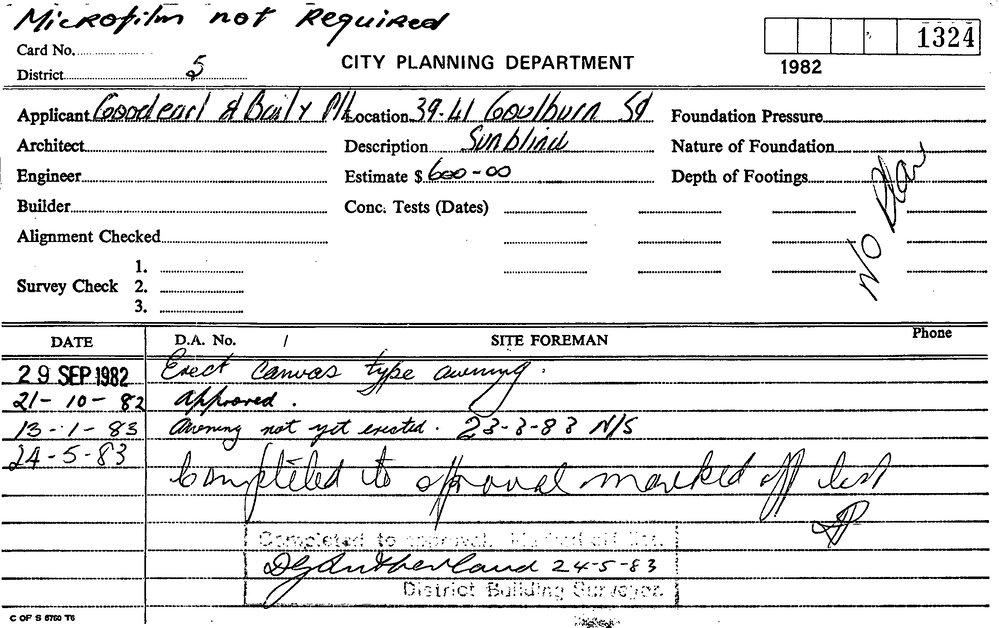 Microfilm not Required
Card No.
1324
District 5
CITY PLANNING DEPARTMENT
1982
Applicant Goodearl & Baily P/L Location 39-41 Goulburn St Foundation Pressure
Architect Description Sunblind Nature of Foundation
Engineer Estimate $ 600-00 Depth of Footings
No Plan
Builder Conc. Tests (Dates)
Alignment Checked
1.
Survey Check 2.
3.
DATE D.A. No. / SITE FOREMAN Phone
29 SEP 1982 Erect canvas type awning.
21-10-82 Approved.
13-1-83 Awning not yet erected. 23-3-83 N/S
24-5-83 Completed to approval marked off list
Completed to approval. Marked off list.
24-5-83
District Building Surveyor.
C OF S 6760 T6